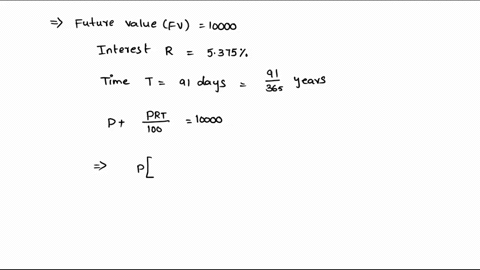 ⇒ Future value (FV) = 10000
Interest R = 5.375%
Time T = 91 days = 91/365 years
P + PRT/100 = 10000
⇒ P[